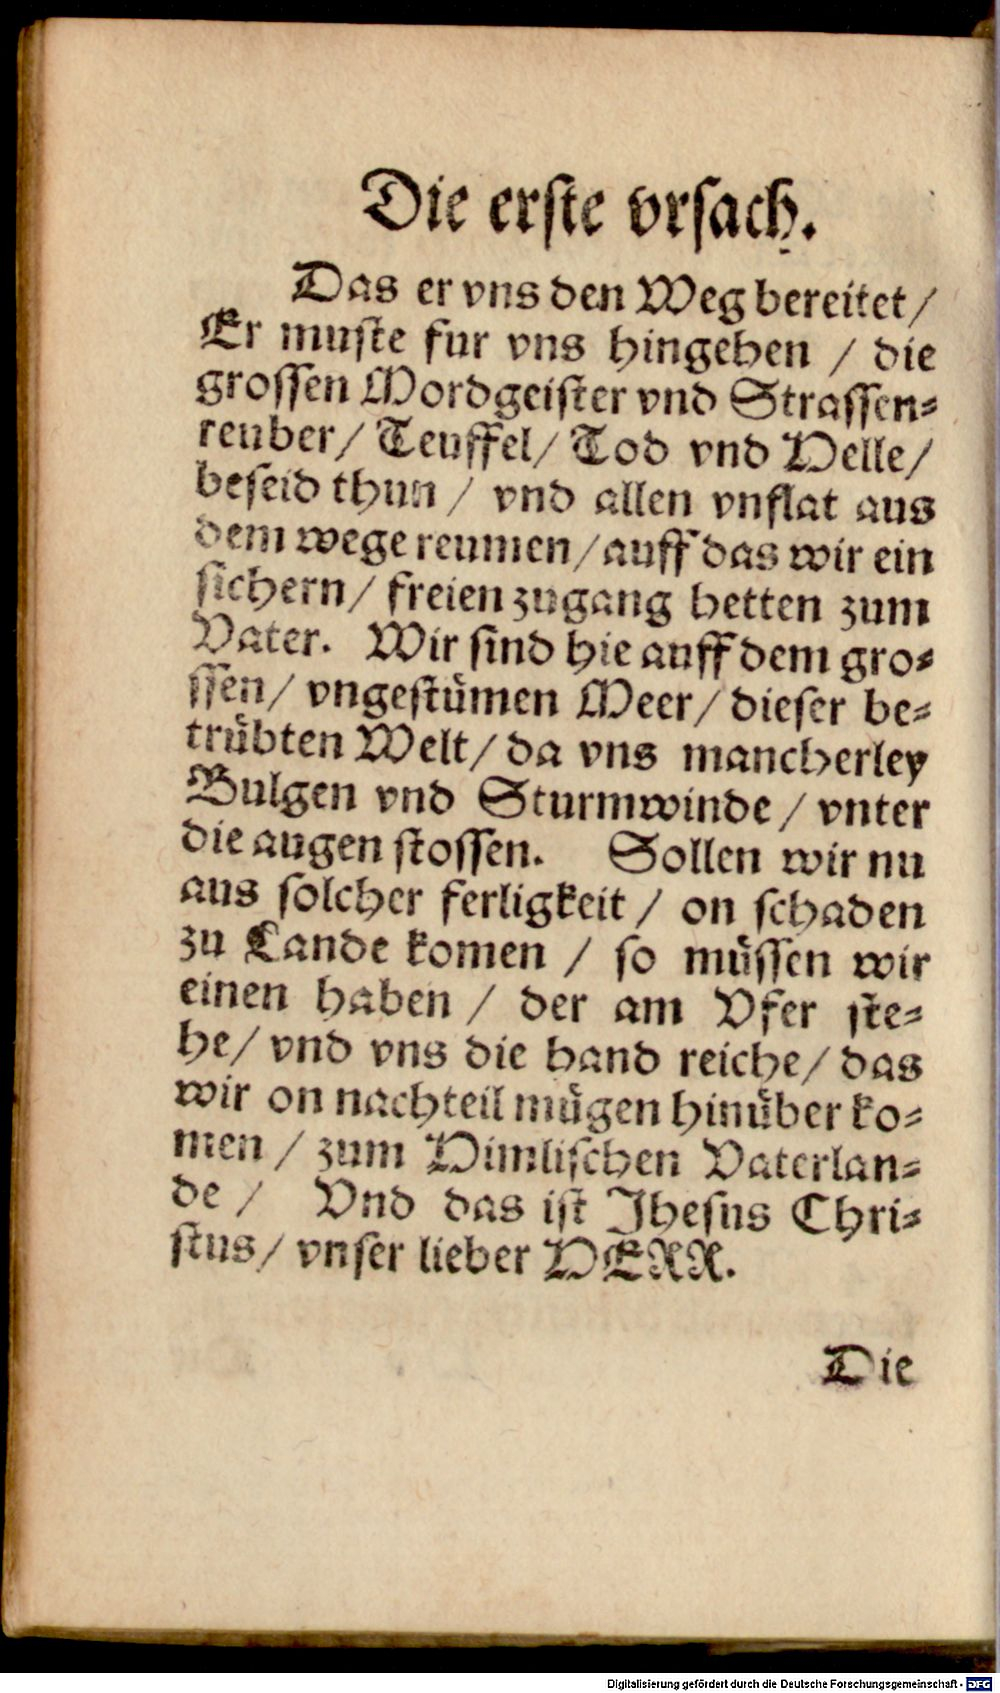 Die erſte vrſach.
Das er vns den Weg bereitet/
Er muſte fur vns hingehen / die
groſſen Mordgeiſter vnd Straſſen⸗
reuber/ Teuffel/ Tod vnd Helle/
beſeid thun / vnd allen vnflat aus
dem wege reumen/ auff das wir ein
ſichern/ freien zugang hetten zum
Vater. Wir ſind hie auff dem gro⸗
ſſen/ vngeſtuͤmen Meer/ dieſer be⸗
truͤbten Welt/ da vns mancherley
Bulgen vnd Sturmwinde / vnter
die augen ſtoſſen. Sollen wir nu
aus ſolcher ferligkeit / on ſchaden
zu Lande komen / ſo muͤſſen wir
einen haben / der am Vfer ſte⸗
he/ vnd vns die hand reiche/ das
wir on nachteil muͤgen hinuͤber ko⸗
men / zum Himliſchen Vaterlan⸗
de / Vnd das iſt Jheſus Chri⸗
ſtus/ vnſer lieber HERR.
Die
Digitalisierung gefördert durch die Deutsche Forschungsgemeinschaft - DFG